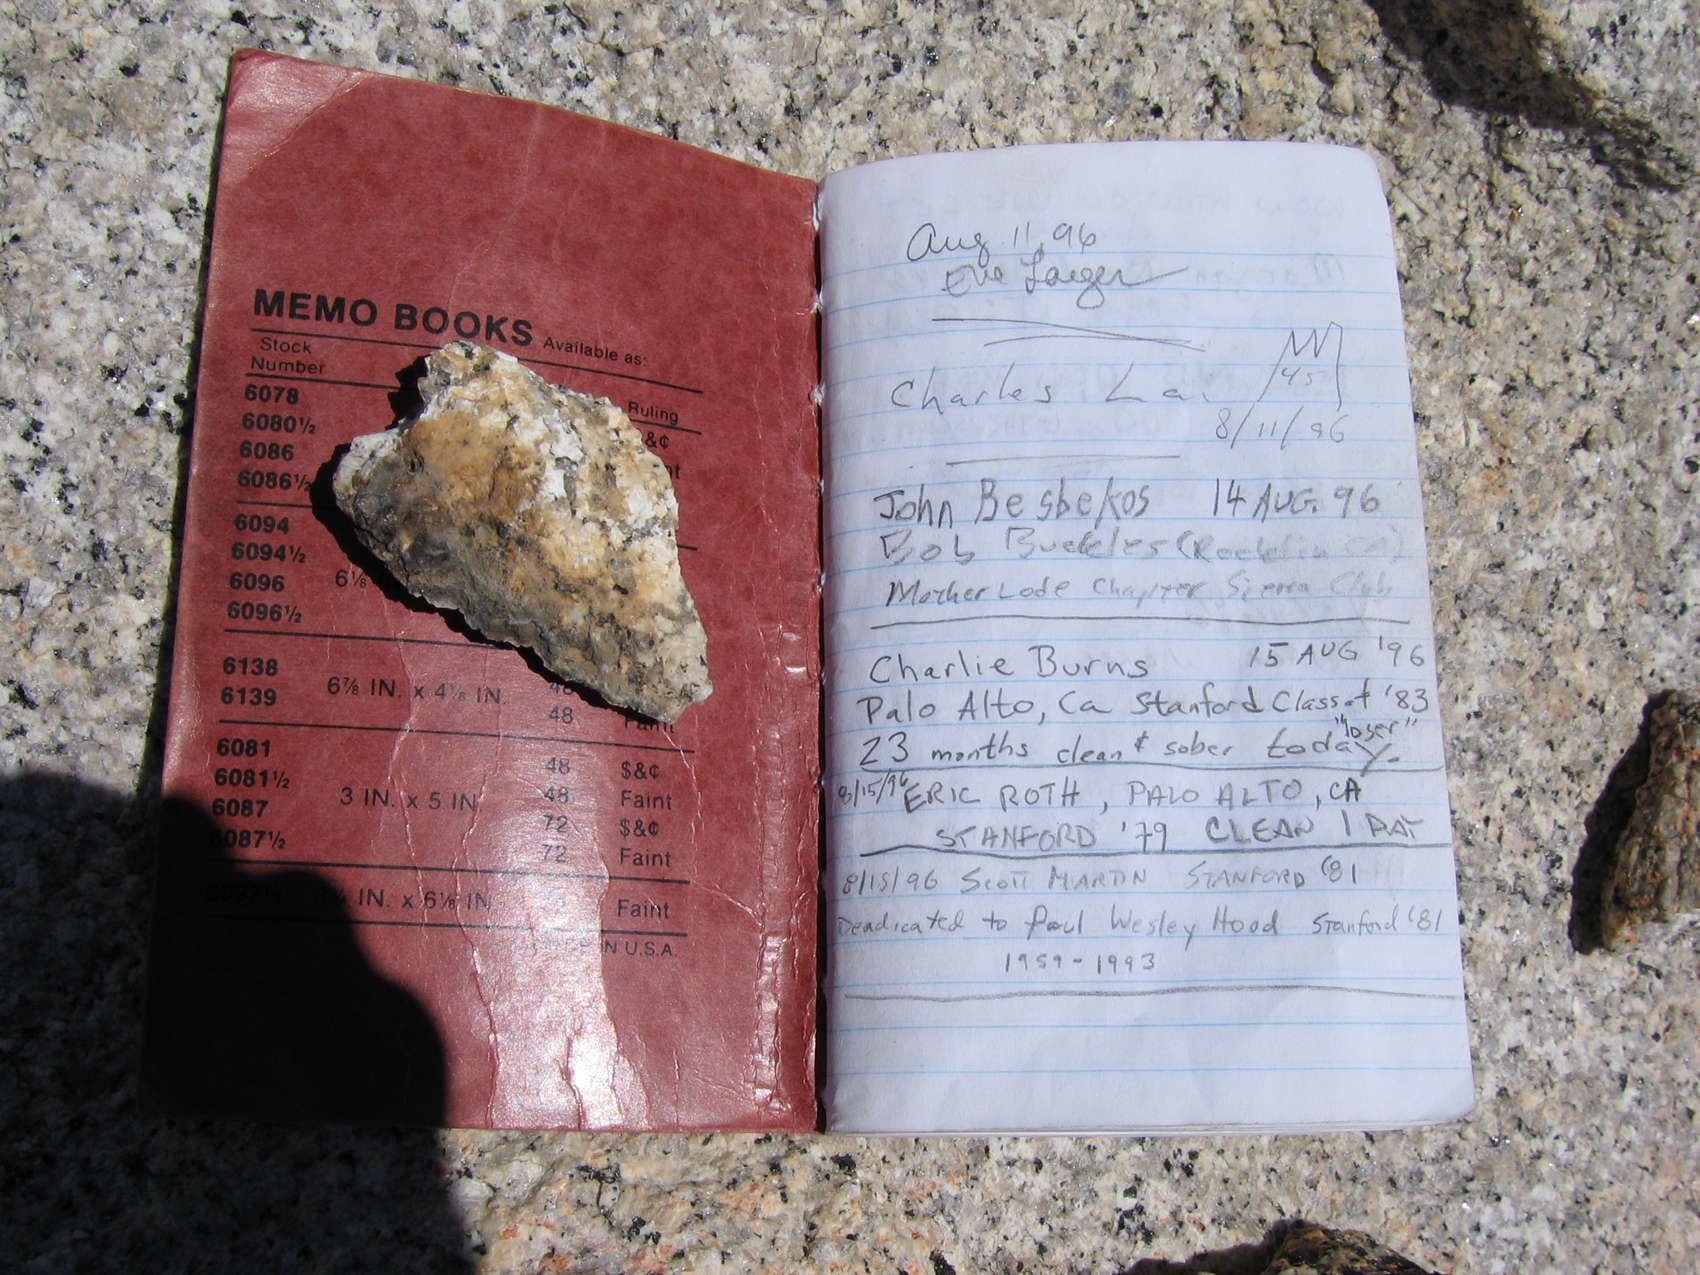 MEMO BOOKS Available as:
Stock
Number
Ruling
6078
6080½
6086
6086½
6094
6094½
6096
6096½
6⅛
6138
6139
6⅞ IN. x 4⅛ IN.
48
48
Faint
6081
6081½
6087
6087½
3 IN. x 5 IN.
48 $&¢
48 Faint
72 $&¢
72 Faint
IN. x 6⅛ IN.
Faint
IN U.S.A.
Aug 11, 96
Eve
Charles La.
45
8/11/96
John Besbekos 14 AUG. 96
Bob Buckles
Mother Lode Chapter Sierra Club
Charlie Burns 15 AUG '96
Palo Alto, Ca Stanford Class of '83
"loser"
23 months clean & sober today.
8/15/96 ERIC ROTH, PALO ALTO, CA
STANFORD '79 CLEAN 1 DAY
8/15/96 SCOTT MARTIN STANFORD '81
Deadicated to Paul Wesley Hood Stanford '81
1959-1993